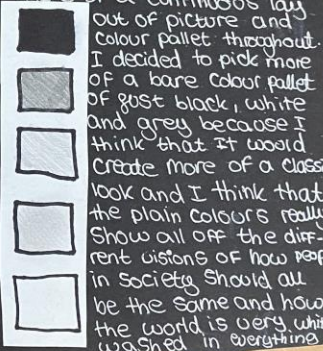 a continuous lay
out of picture and
colour pallet throughout.
I decided to pick more
of a bare colour pallet
of gust black, white
and grey because I
think that it would
create more of a classi
look and I think that
the plain colours really
show all off the diff-
rent visions of how peop
in society should all
be the same and how
the world is very whi
washed in everything